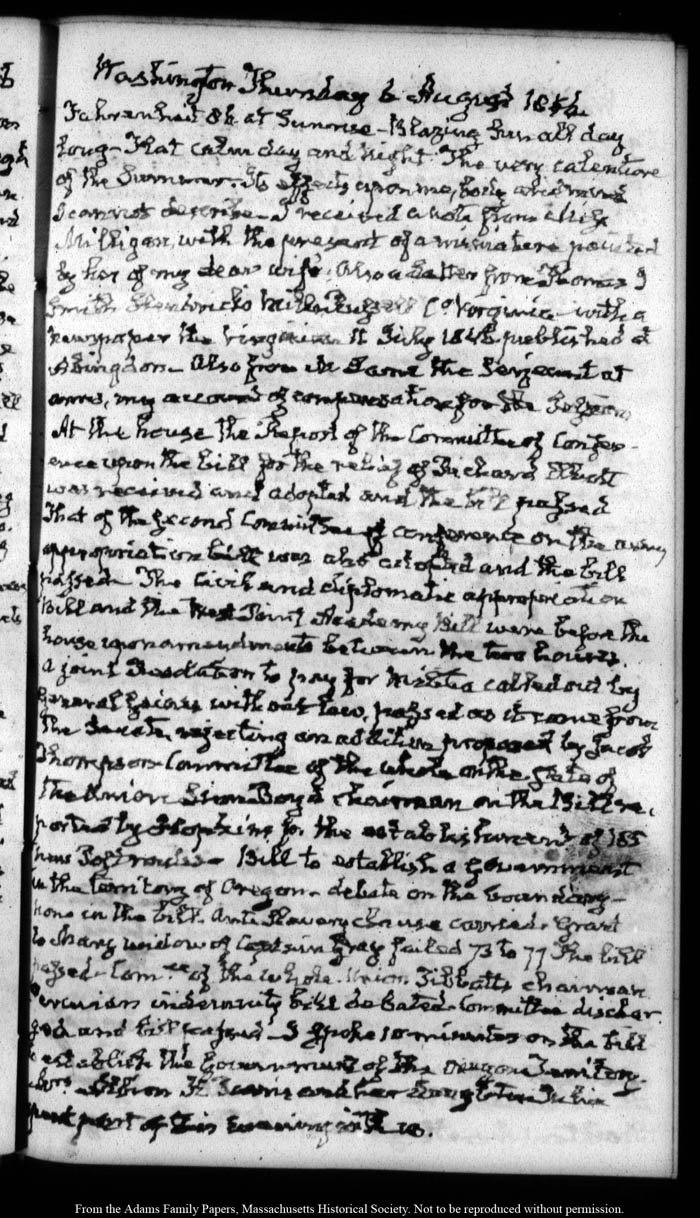 Washington Thursday 6 August 1846.
Fahrenheit 84 at Sunrise - Blazing Sun all day
long - That calm day and night. The very calenture
of the Summer. Its effects upon me, body and mind
I cannot describe - I received a note from Miss
Milligan, with the present of a miniature painted
by her of my dear wife. Also a Letter from Thomas J
Smith Hendricks Mill Russell Co. Virginia with a
newspaper the Virginian 11 July 1846 published at
Abingdon - Also from the Sergeant at
arms, my account of compensation for the Session
At the house the Report of the Committee of Confer-
ence upon the bill for the relief of Richard Elliott
was received and adopted and the bill passed
That of the second Committee of conference on the army
appropriation bill was also adopted and the bill
passed - The Civil and diplomatic appropriation
Bill and the West Point Academy Bill were before the
house upon amendments between the two houses.
A joint Resolution to pay for Militia called out by
General Gaines without law, passed as it came from
the Senate, rejecting an addition proposed by Jacob
Thompson - Committee of the whole on the state of
the Union Linn Boyd chairman on the Bill re-
ported by Hopkins for the establishment of 185
new Post routes - Bill to establish a government
in the territory of Oregon - debate on the bounding
in the bill. Anti Slavery clause carried. Grant
to widow of Captain Gray failed 73 to 77 The bill
passed - Com.ee of the whole. Union Tibbatts chairman
Peruvian indemnity bill debated - Committee dischar-
ged and bill passed - I spoke 10 minutes on the bill
to establish the Government of the Oregon Territory.
and her daughter Julia
spent part of this evening with us.
From the Adams Family Papers, Massachusetts Historical Society. Not to be reproduced without permission.